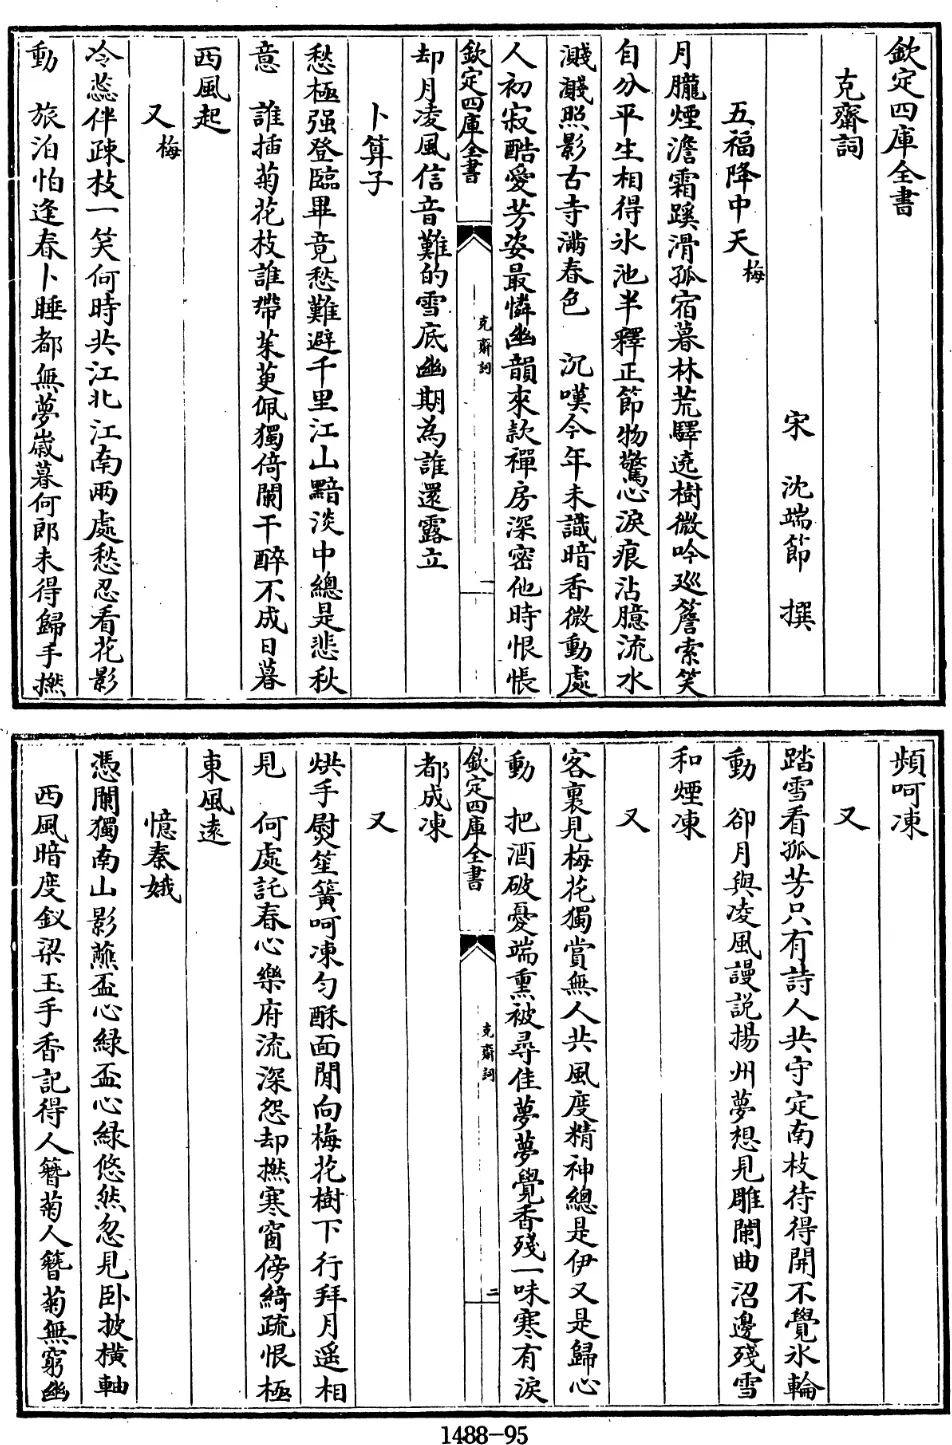 欽定四庫全書
克齋詞
宋 沈端節 撰
五福降中天梅
月朧煙澹霜蹊滑孤宿暮林荒驛遶樹微吟廵簷索笑
自分平生相得氷池半釋正節物驚心淚痕沾臆流水
濺濺照影古寺滿春色 沉嘆今年未識暗香微動處
人初寂酷愛芳姿最憐幽韻來款禪房深密他時恨悵
欽定四庫全書
克齋詞
一
却月凌風信音難的雪底幽期為誰還露立
卜算子
愁極强登臨畢竟愁難避千里江山黯淡中總是悲秋
意 誰插菊花枝誰帶茱萸佩獨倚闌干醉不成日暮
西風起
又梅
冷蕊伴疎枝一笑何時共江北江南兩處愁忍看花影
動 旅泊怕逢春卜睡都無夢嵗暮何郎未得歸手撚
頻呵凍
又
踏雪看孤芳只有詩人共守定南枝待得開不覺氷輪
動 卻月與凌風謾説揚州夢想見雕闌曲沼邊殘雪
和煙凍
又
客裏見梅花獨賞無人共風度精神總是伊又是歸心
動 把酒破憂端熏被尋佳夢夢覺香殘一味寒有淚
欽定四庫全書
克齋詞
二
都成凍
又
烘手熨笙簧呵凍匀酥面閒向梅花樹下行拜月遥相
見 何處託春心樂府流深怨却撚寒窗傍綺疏恨極
東風逺
憶秦娥
憑闌獨南山影蘸盃心緑盃心緑悠然忽見卧披横軸
西風暗度釵梁玉手香記得人簪菊人簪菊無窮幽
1488-95